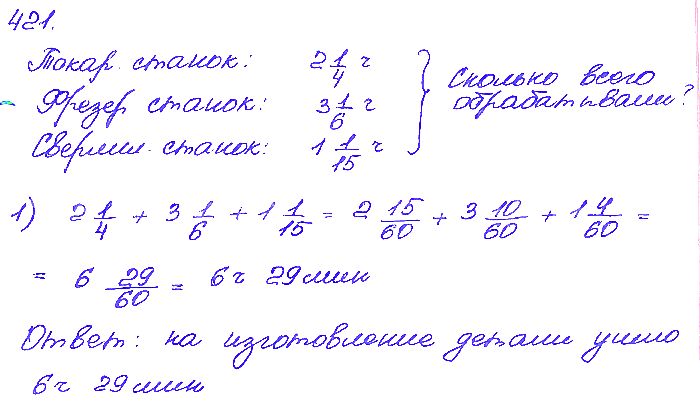 421.
Токар. станок: 2 1/4 ч
Фрезер станок: 3 1/6 ч
Сверлил. станок: 1 1/15 ч
Сколько всего
обрабатывали?
1) 2 1/4 + 3 1/6 + 1 1/15 = 2 15/60 + 3 10/60 + 1 4/60 =
= 6 29/60 = 6 ч 29 мин
Ответ: на изготовление детали ушло
6 ч 29 мин